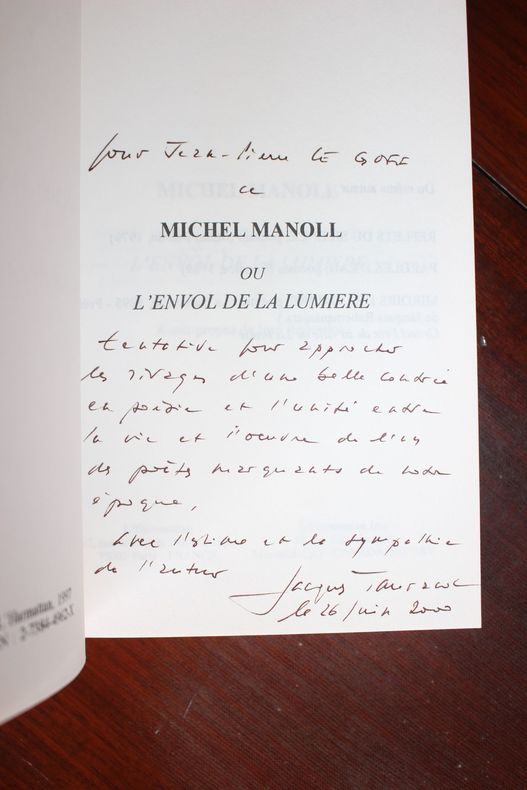 pour Jean-Pierre LE GOFF
ce
MICHEL MANOLL
OU
L'ENVOL DE LA LUMIERE
tentative pour approcher
les rivages d'une belle contrée
en poésie et l'unité entre
la vie et l'oeuvre de l'un
des poètes marquants de notre
époque,
avec l'estime et la sympathie
de l'auteur
Jacques
le 26 Juin 2000
L'Harmattan, 1997
2-7384-4962-X